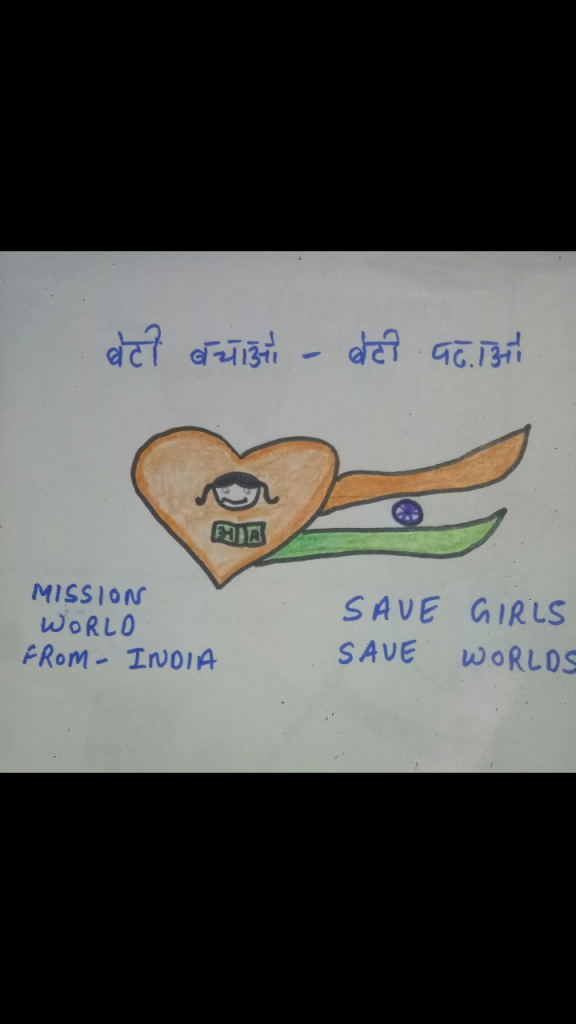 बेटी बचाओ - बेटी पढ़ाओ
अ A
MISSION
WORLD
FROM - INDIA
SAVE GIRLS
SAVE WORLDS